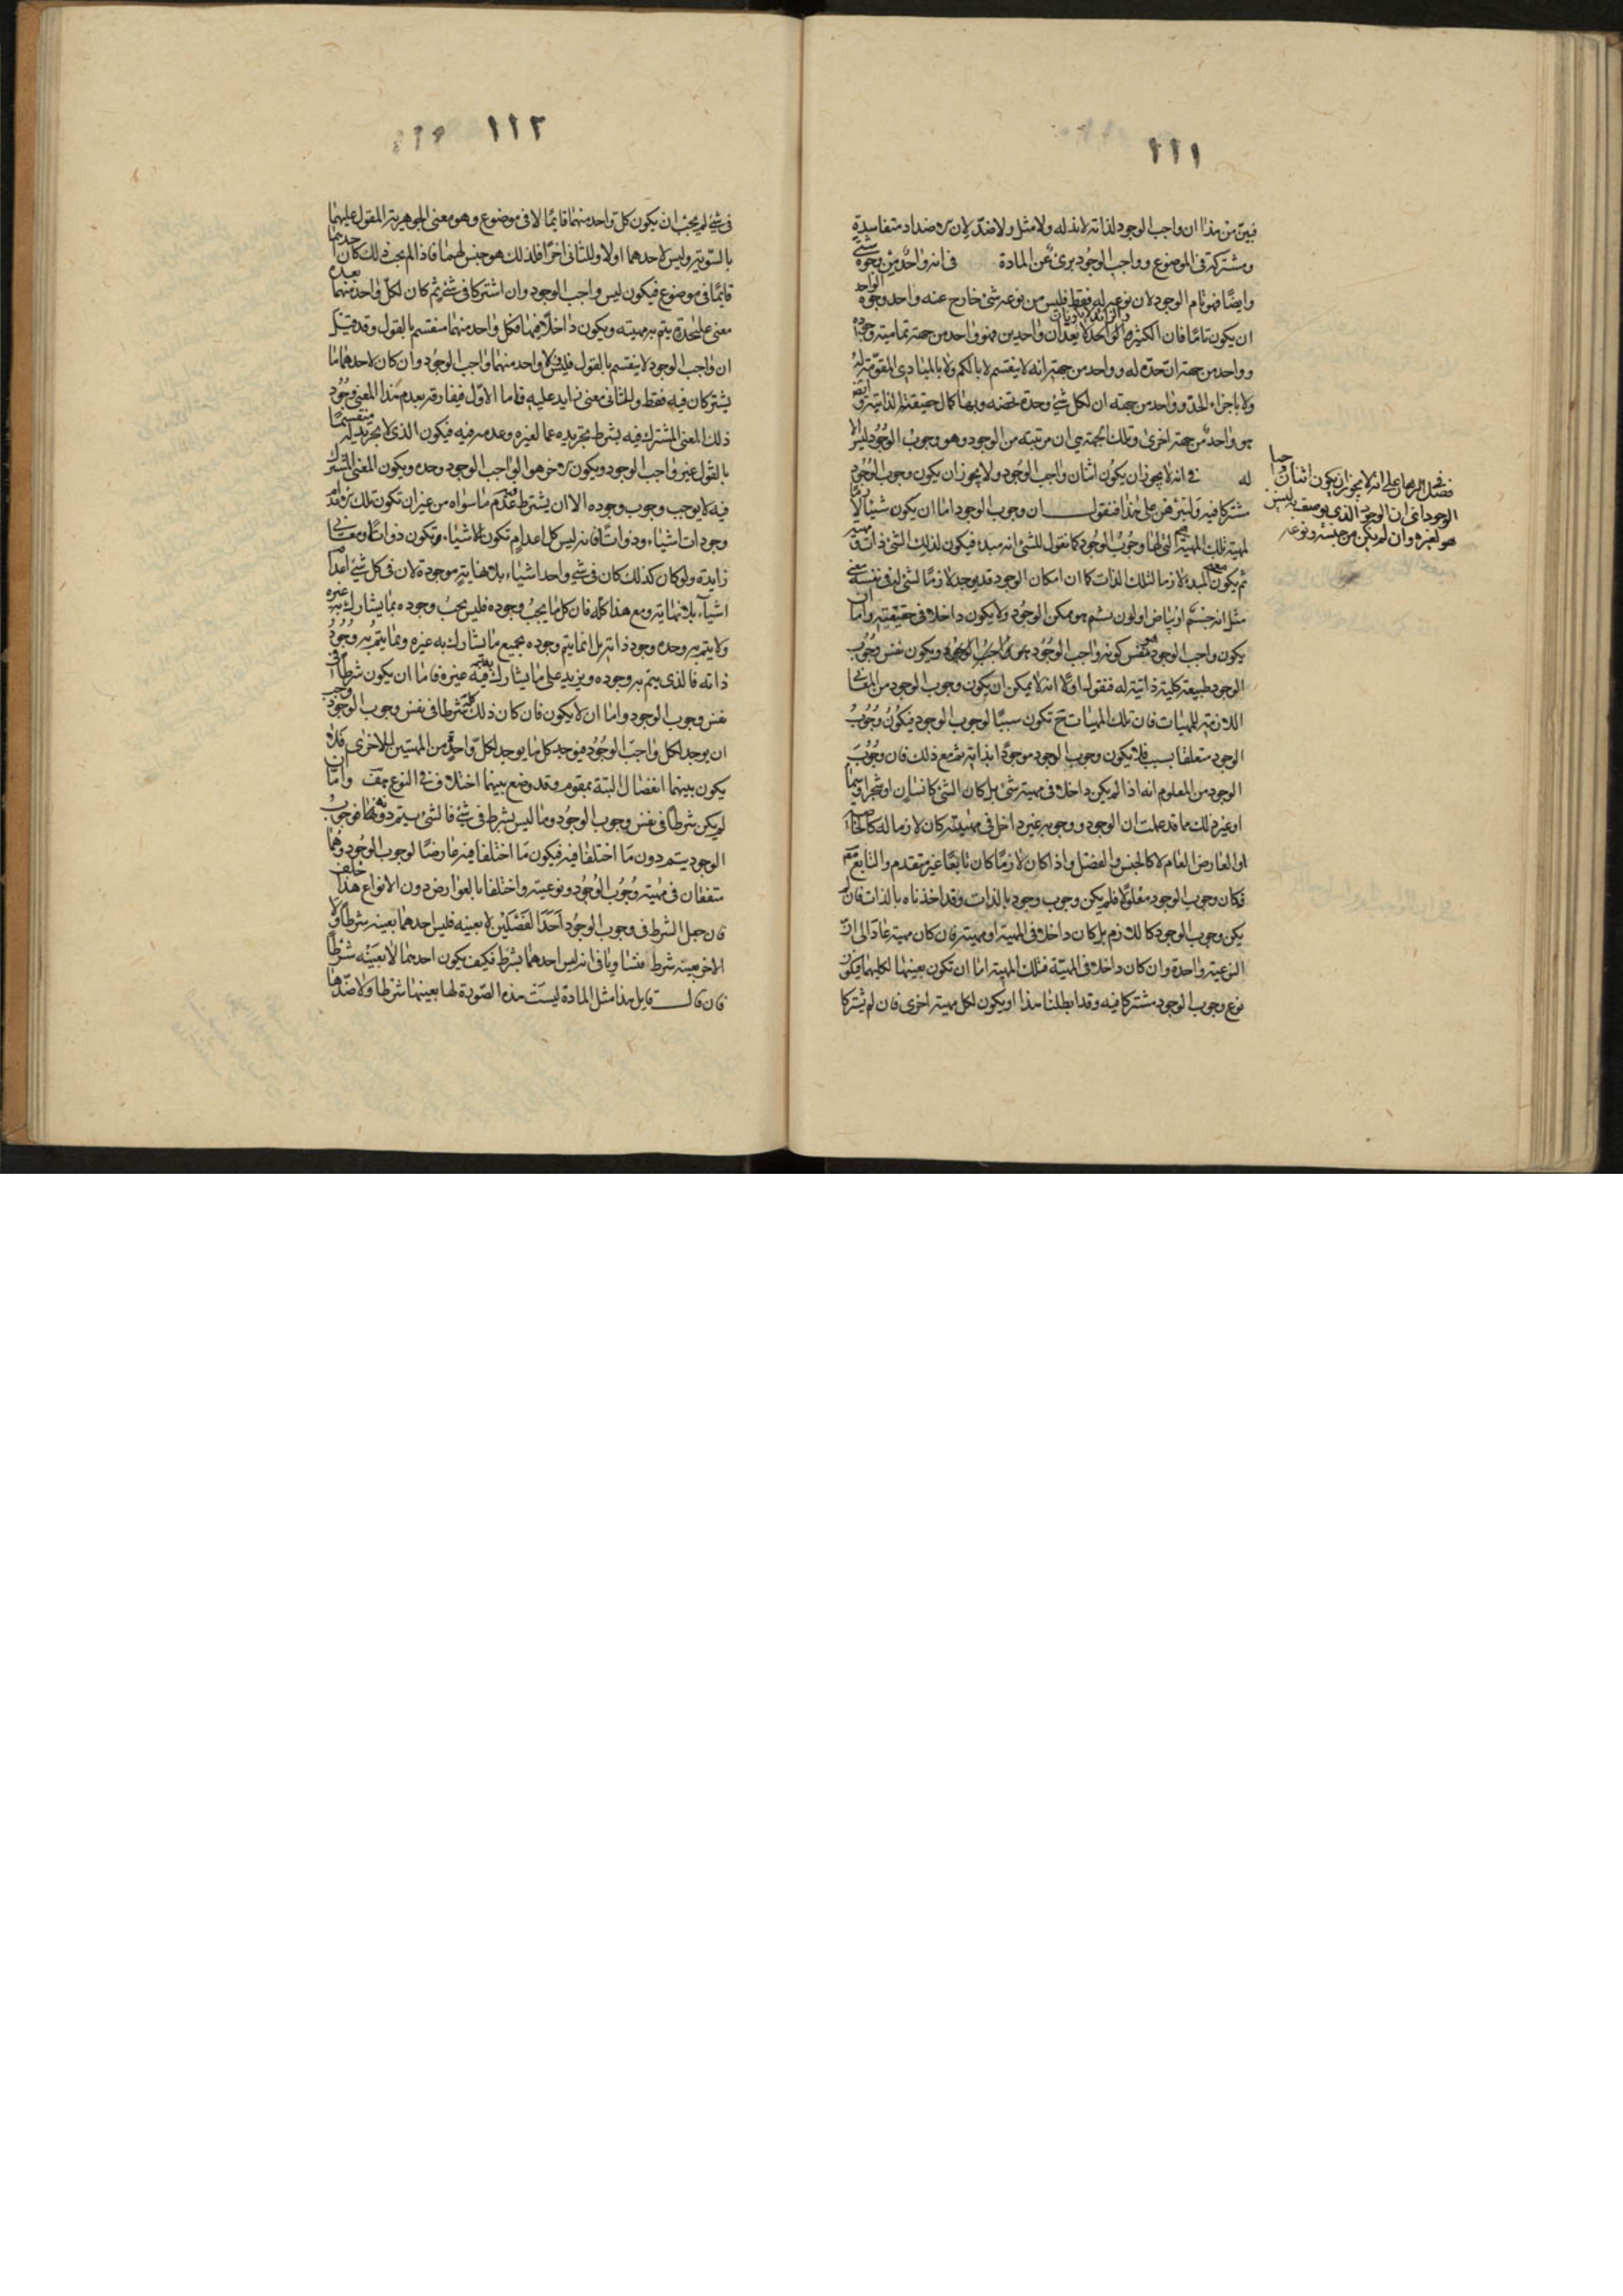 ١١١
فبين من هذا ان واجب الوجود لذاته لا ند له ولا مثل ولا ضد لان الاضداد متفاسدة
ومشتركة في الموضوع وواجب الوجود برئ عن المادة في انه واحد من وجوه شتى
وايضا فهو تام الوجود لان نوعه له فقط فليس من نوعه شئ خارج عنه واحد وجوه الواحد
ان يكون تاما فان الكثير والزائد لا يكونان واحدين فهو واحد من جهة تمامية وجوده
وواحد من جهة ان حده له وواحد من جهة انه لا ينقسم لا بالكم ولا بالمبادى المقومة له
ولا باجزاء الحد وواحد من جهة ان لكل شئ وحدة تخصه وبها كمال حقيقته الذاتية وايضا
هو واحد من جهة اخرى وتلك الجهة هي ان مرتبته من الوجود وهو وجوب الوجود ليس الا
له في انه لا يجوز ان يكون اثنان واجب الوجود ولا يجوز ان يكون وجوب الوجود
مشتركا فيه ولنبرهن على هذا فنقول ان وجوب الوجود اما ان يكون شيئا لازما
لمهية تلك المهية هي التي لها وجوب الوجود كما نقول للشئ انه مبدء فيكون لذلك الشئ ذات ومهية
ثم يكون معنى المبدء لازما لتلك الذات كما ان امكان الوجود قد يوجد لازما لشئ له في نفسه معنى
مثل انه جسم او بياض او لون ثم هو ممكن الوجود ولا يكون داخلا في حقيقته واما ان
يكون واجب الوجود هو نفس كونه واجب الوجود هو واجب الوجود ويكون نفس وجوب
الوجود طبيعة كلية ذاتية له فنقول اولا انه لا يمكن ان يكون وجوب الوجود من المعانى
اللازمة للمهيات فان تلك المهيات ح تكون سببا لوجوب الوجود فيكون وجوب
الوجود متعلقا بسبب فلا يكون وجوب الوجود موجودا بذاته ثم مع ذلك فان وجوب
الوجود من المعلوم انه اذا لم يكن داخلا في مهية شئ بل كان الشئ كانسان او شجر او سماء
او غير ذلك مما قد علمت ان الوجود ووجوبه غير داخل في مهيته كان لازما له كالخاصة
او العارض العام لا كالجنس والفصل واذا كان لازما كان تابعا غير متقدم والتابع معلول
فكان وجوب الوجود معلولا فلم يكن وجوب وجود بالذات وقد اخذناه بالذات فان لم
يكن وجوب الوجود كاللازم بل كان داخلا في المهية او مهية فان كان مهية عاد الى ان
النوعية واحدة وان كان داخلا في المهية فتلك المهية اما ان تكون بعينها لكليهما فيكون
نوع وجوب الوجود مشتركا فيه وقد ابطلنا هذا او يكون لكل مهية اخرى فان لم يشتركا
فصل في البرهان على انه لا يجوز ان يكون اثنان واجبا
الوجود اى ان الوجود الذي يوصف به ليس
هو لغيره وان لم يكن من جنسه ونوعه
١١٢
في شئ لم يجب ان يكون كل واحد منهما قايما لا في موضوع وهو معنى الجوهرية المقول عليهما
بالسوية وليس لاحدهما اولا وللثانى اخرا فلذلك هو جنس لهما فاذا لم يجب ذلك كان احدهما
قايما في موضوع فيكون ليس واجب الوجود وان اشتركا في شئ ثم كان لكل واحد منهما بعده
معنى على حدة يتم به مهيته ويكون داخلا فيهما فكل واحد منهما منقسم بالقول وقد قيل
ان واجب الوجود لا ينقسم بالقول فليس ولا واحد منهما واجب الوجود وان كان لاحدهما ما
يشتركان فيه فقط وللثانى معنى زايد عليه فاما الاول فيفارقه بعدم هذا المعنى ووجود
ذلك المعنى المشترك فيه بشرط تجريده عما لغيره وعدمه فيه فيكون الذي لا تجريد له منقسما
بالقول غير واجب الوجود ويكون الاخر هو الواجب الوجود وحده ويكون المعنى المشترك
فيه لا يوجب وجوب وجوده الا ان يشترط فيه عدم ما سواه من غير ان تكون تلك الاعدام
وجودات اشياء وذواتا فانه ليس كل اعدام تكون للاشياء وتكون ذواتا ومعانى
زايدة ولو كان كذلك كان في شئ واحد اشياء بلا نهاية موجودة لان في كل شئ اعدام
اشياء بلا نهاية ومع هذا كله فان كل ما يجب وجوده فليس يجب وجوده بما يشارك به غيره
ولا يتم به وحده وجود ذاته بل انما يتم وجوده بجميع ما يشارك به غيره وبما يتم به وجود
ذاته فالذي يتم به وجوده ويزيد على ما يشارك فيه غيره فاما ان يكون شرطا في
نفس وجوب الوجود واما ان لا يكون فان كان ذلك كله شرطا في نفس وجوب الوجود وجب
ان يوجد لكل واجب الوجود فيوجد كل ما يوجد لكل واحد من المهيتين للاخرى فلا
يكون بينهما انفصال البتة بمقوم وقد وضع بينهما اختلاف في النوع هف واما ان
لم يكن شرطا في نفس وجوب الوجود وما ليس بشرط في شئ فالشئ يتم دونه فوجوب
الوجود يتم دون ما اختلفا فيه فيكون ما اختلفا فيه عارضا لوجوب الوجود وهما
متفقان في مهية وجوب الوجود ونوعيته واختلفا بالعوارض دون الانواع هذا خلف
فان جعل الشرط في وجوب الوجود احد الفصلين لا بعينه فليس احدهما بعينه شرطا ولا
الاخر بعينه شرط فتساويا في انه ليس احدهما بشرط فكيف يكون احدهما لا بعينه شرطا
فان قال قايل هذا مثل المادة ليست هذه الصورة لها بعينها شرطا ولا ضدها